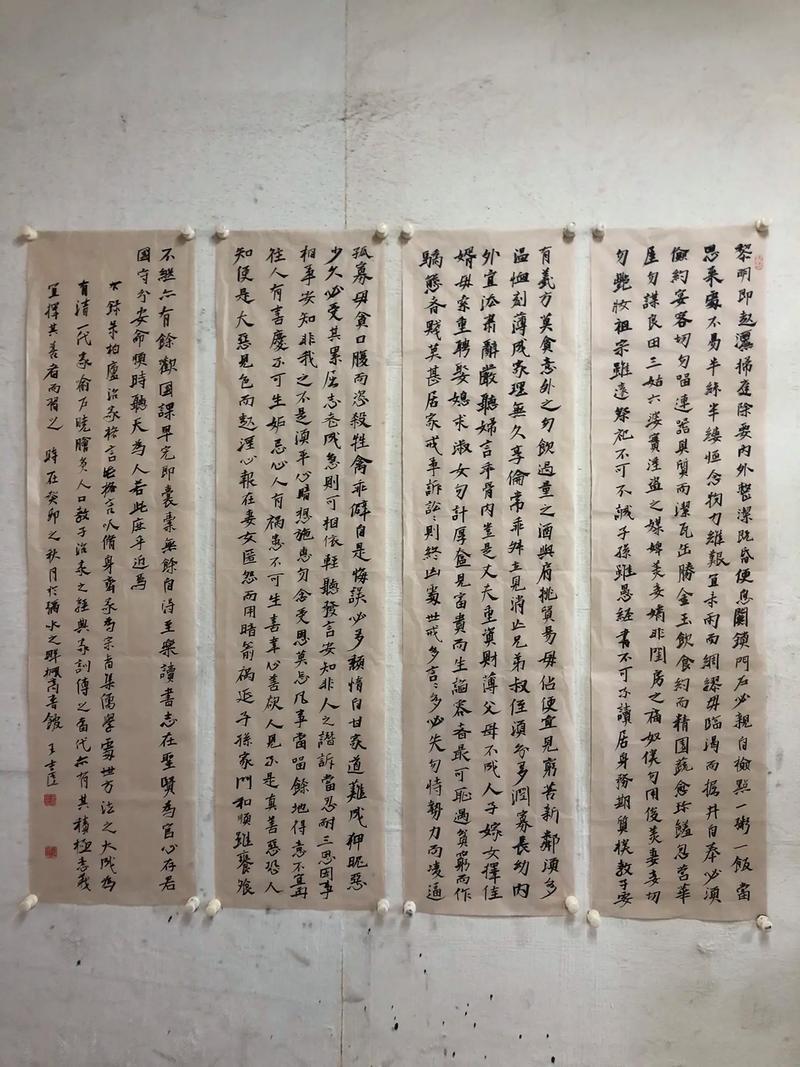 黎明即起灑掃庭除要內外整潔既昏便息關鎖門戶必親自檢點一粥一飯當
思來處不易半絲半縷恒念物力維艱宜未雨而綢繆毋臨渴而掘井自奉必須
儉約宴客切勿留連器具質而潔瓦缶勝金玉飲食約而精園蔬愈珍饈忽營華
屋勿謀良田三姑六婆實淫盜之媒婢美妾嬌非閨房之福奴僕勿用俊美妻妾切
勿艷妝祖宗雖遠祭祀不可不誠子孫雖愚經書不可不讀居身務期質樸教子要
有義方莫貪意外之勿飲過量之酒與肩挑貿易毋佔便宜見窮苦新鄰須多
溫恤刻薄成家理無久享倫常乖舛立見消亡兄弟叔侄須分多潤寡長幼內
外宜法肅辭嚴聽婦言乖骨肉豈是丈夫重資財薄父母不成人子嫁女擇佳
婿毋索重聘娶媳求淑女勿計厚奩見富貴而生諂容者最可恥遇貧窮而作
驕態者賤莫甚居家戒爭訴訟:則終凶處世戒多言:多必失勿恃勢力而凌逼
孤寡毋貪口腹而恣殺牲禽乖僻自是悔誤必多頹惰自甘家道難成狎昵惡
少久必受其累屈志老成急則可相依輕聽發言安知非人之譖訴當忍耐三思因事
相爭安知非我之不是須平心暗想施惠勿念受恩莫忘凡事當留餘地得意不宜再
往人有喜慶不可生妒忌心人有禍患不可生喜幸心善欲人見不是真善惡恐人
知便是大惡見色而起淫心報在妻女匿怨而用暗箭禍延子孫家門和順雖饔飧
不繼亦有餘歡國課早完即囊橐無餘自得至樂讀書志在聖賢為官心存君
國守分安命順時聽天為人若此庶乎近焉
右錄朱柏廬治家格言此格言以修身齊家為宗旨集儒學處世方法之大成為
有清一代家喻戶曉膾炙人口教子治家之經典家訓傳之當代亦有其積極意義
宜擇其善者而習之 時在癸卯之秋月於水之畔楓高書館 王臣